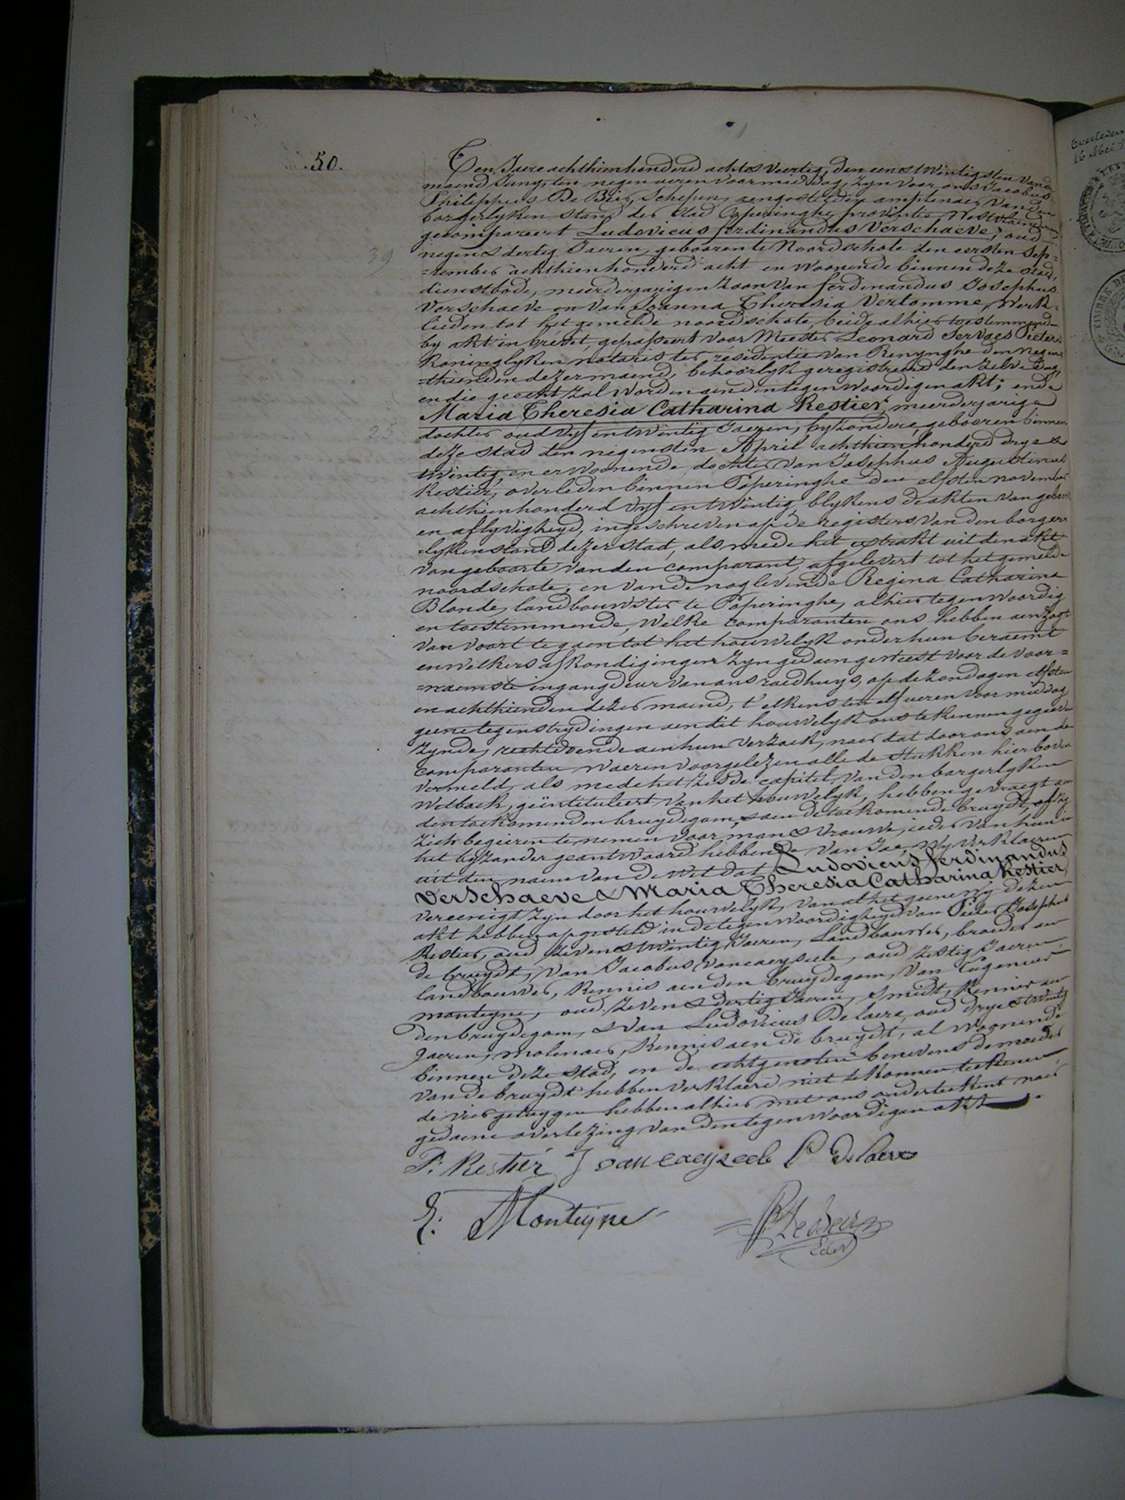 50.
Ten Jaere achthienhonderd acht & veertig, den een & twintigsten van de
maend Juny, ten negen ueren voormiddag, zyn voor ons Jacobus
Philippus De Bier, Schepen, aengestelden amptenaer van den
borgerlyken stand der stad Poperinghe, provintie Westvlaenderen,
gecompareert Ludovicus ferdinandus Verschaeve, oud
negen & dertig Jaeren, gebooren te Noordschote den eersten Sep-
39
-tember achthienhonderd acht en woonende binnen deze stad,
dienstbode, meerderjaerigen zoon van ferdinandus Josephus
Verschaeve en van Joanna Theresia Verlomme, Werk-
lieden tot het gemelde noordschote, beide alhier toestemmende
by akt en brevet, gepasseert voor Meester Leonard Servaes Pieters
Koninglyken notaris ter residentie van Renynghe den negen-
-thienden dezer maend, behoorlyk geregistreerd den zelven dag
en die gehecht zal worden aen den tegenwoordigen akt; ende
Maria Theresia Catharina Restier, meerderjarige
25
dochter oud vyf en twintig Jaeren, byzondere gebooren binnen
deze stad den negensten April achthienhonderd drye &
twintig, en er woonende dochter van Josephus Augustinus
Restier, overleden binnen Poperinghe den elfsten november
achthienhonderd vyf en twintig blykens de akten van geboorte
en aflyvigheyd, ingeschreven op de registers van den borger-
-lyken stand dezer stad, als mede het extrakt uit den akt
van geboorte van den comparant, afgelevert tot het gemelde
noordschote, en van de nog levende Regina Catharina
Blonde, landbouwster te Poperinghe, alhier tegenwoordig
en toestemmende, welke comparanten ons hebben aenzogt
van voort te gaen tot het houwelyk onder hun beraemt
en welkers afkondigingen zyn gedaen geweest voor de voor-
-naemste ingangdeur van ons raedhuys, op de zondagen elfsten
en achthienden dezer maend, t'elkens ten elf ueren voormiddag
geene tegenstrydingen aen dit houwelyk ons te kennen gegeven
zynde, rechtdoende aen hun verzoek, naer dat door ons aen de
comparanten waeren voorgelezen alle de stukken hier boven
vermeld, als mede het zesde capitel van den borgerlyken
Wetboek, geïntituleert van het houwelyk, hebben gevraegt aen
den toekomenden bruydegom, & aen de toekomende bruydt, of zy
zich begeeren te nemen voor man & vrouwe; ieder van hun in
het byzonder geantwoord hebbende van Jae, wy verklaeren
uit den naem van de Wet dat Ludovicus ferdinandus
Verschaeve & Maria Theresia Catharina Restier,
vereenigt zyn door het houwelyk, van al het geene wy dezen
akt hebben opgesteld in de tegenwoordigheyd van Pieter Josephus
Restier, oud zeven & twintig Jaeren, landbouwer, broeder aen
de bruydt, van Jacobus Vancaeyseele, oud zestig Jaeren
landbouwer, Kennis aen den bruydegom, van Eugenius
Monteyne, oud zeven & dertig Jaeren, smidt, Kennis aen
den bruydegom, & van Ludovicus De Laere, oud drye & twintig
Jaeren, molenaer, Kennis aen de bruydt, al woonende
binnen deze stad, en de echtgenoten benevens de moeder
van de bruydt hebben verklaerd niet te konnen teekenen
de vier getuygen hebben alhier met ons onderteekent naer
gedaene overlezing van den tegenwoordigen akt.
P: Restier J vancaeyseele L Delaere
E: Monteyne